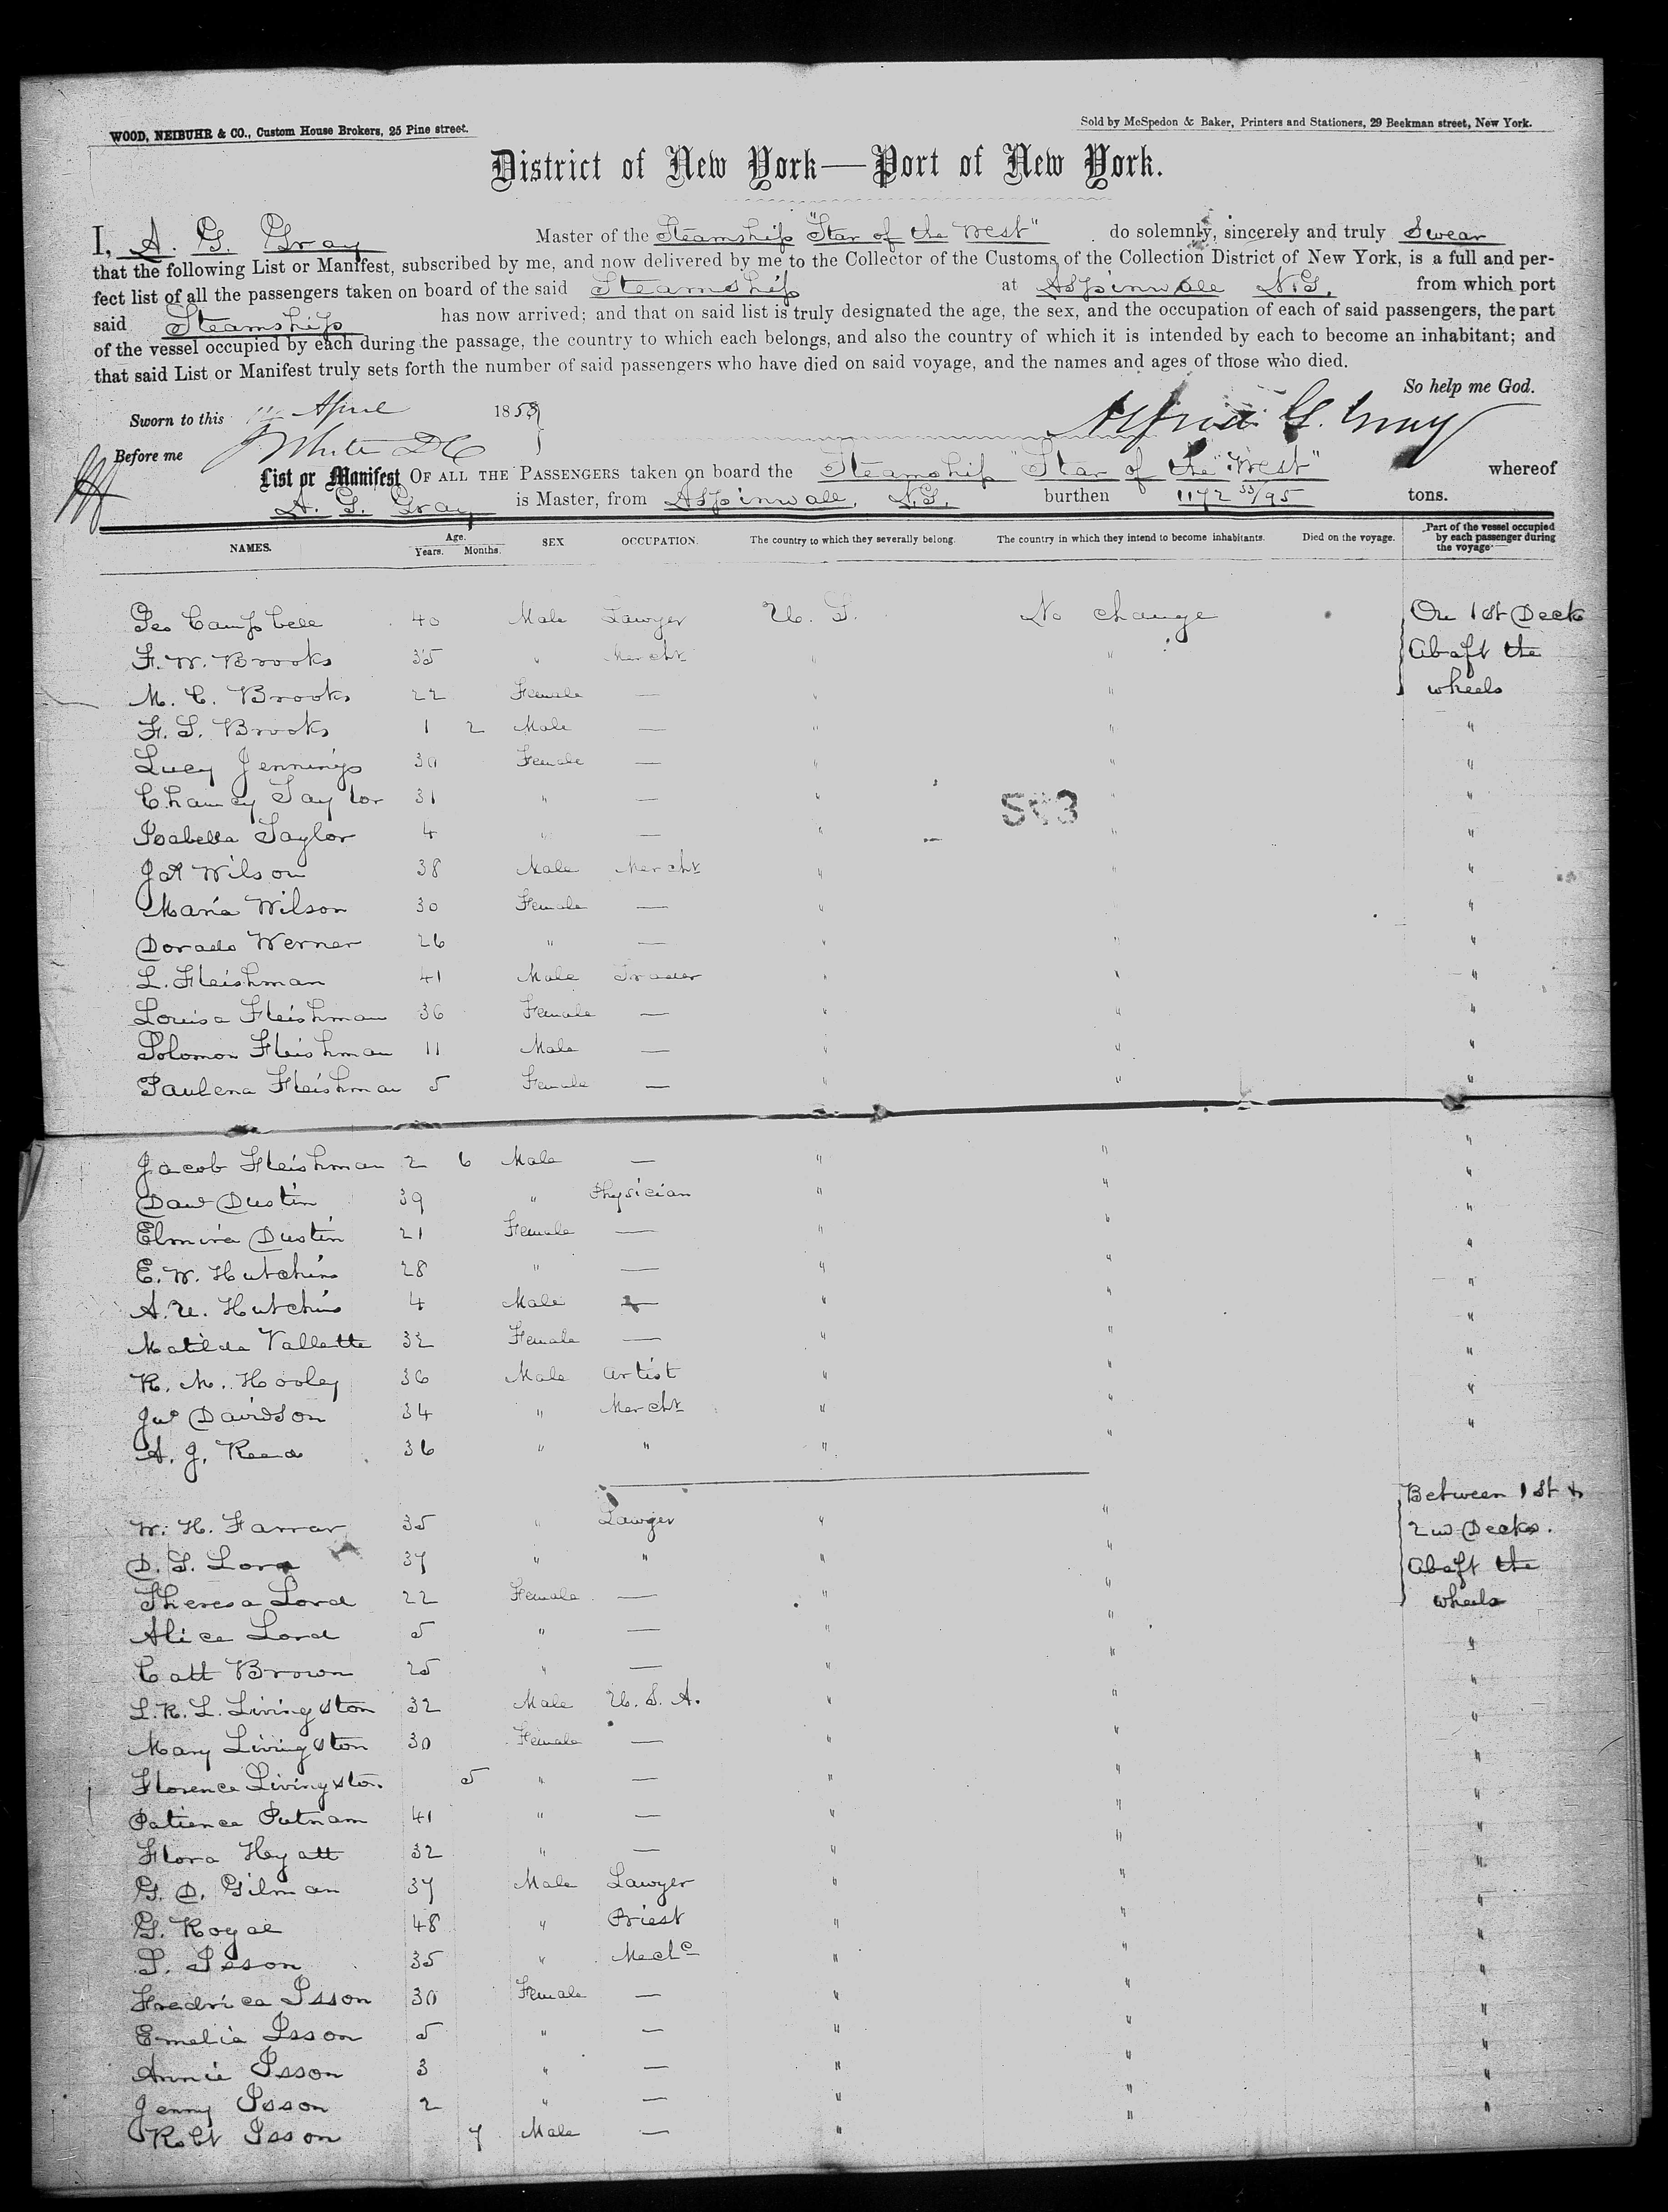 WOOD, NEIBUHR & CO., Custom House Brokers, 25 Pine street.
Sold by McSpedon & Baker, Printers and Stationers, 29 Beekman street, New York.
District of New York—Port of New York.
I, A. G. Gray Master of the Steamship "Star of the West" do solemnly, sincerely and truly Swear
that the following List or Manifest, subscribed by me, and now delivered by me to the Collector of the Customs of the Collection District of New York, is a full and per-
fect list of all the passengers taken on board of the said Steamship at Aspinwall N.G. from which port
said Steamship has now arrived; and that on said list is truly designated the age, the sex, and the occupation of each of said passengers, the part
of the vessel occupied by each during the passage, the country to which each belongs, and also the country of which it is intended by each to become an inhabitant; and
that said List or Manifest truly sets forth the number of said passengers who have died on said voyage, and the names and ages of those who died.
So help me God.
Sworn to this April 1858
Alfred G. Gray
Before me White DC
List or Manifest OF ALL THE PASSENGERS taken on board the Steamship "Star of the West" whereof
A. G. Gray is Master, from Aspinwall, N.G. burthen 1172 53/95 tons.
NAMES. Age. Years. Months. SEX OCCUPATION. The country to which they severally belong. The country in which they intend to become inhabitants. Died on the voyage. Part of the vessel occupied by each passenger during the voyage
Geo Campbell 40 Male Lawyer U. S. No change On 1st Deck
F. W. Brooks 35 " Mercht " " Abaft the
M. C. Brooks 22 Female — " " wheels
F. S. Brooks 1 2 Male — " " "
Lucy Jennings 30 Female — " " "
Chauncy Taylor 31 " — " " "
563
Isabella Taylor 4 " — " "
J A Wilson 38 Male Mercht " " "
Maria Wilson 30 Female — " "
Dorado Werner 26 " — " " "
L. Fleishman 41 Male Trader " " "
Louisa Fleishman 36 Female — " " "
Solomon Fleishman 11 Male — " " "
Paulena Fleishman 5 Female — " " "
Jacob Fleishman 2 6 Male — " " "
Davd Dustin 39 " Physician " " "
Elmira Dustin 21 Female — " " "
E. W. Hutchins 28 " — " " "
A. U. Hutchins 4 Male — " " "
Matilda Vallette 32 Female — " " "
R. M. Hooley 36 Male Artist " " "
Jno Davidson 34 " Mercht " " "
A. J. Reed 36 " " " " "
Between 1st &
W. H. Farrar 35 " Lawyer " " 2nd Decks.
D. S. Lord 37 " " " " Abaft the
Theresa Lord 22 Female — " " wheels
Alice Lord 5 " — " " "
Catt Brown 25 " — " " "
L. R. L. Livingston 32 Male U. S. A. " " "
Mary Livingston 30 Female — " " "
Florence Livingston 5 " — " " "
Patience Putnam 41 " — " " "
Flora Hyatt 32 " — " " "
G. D. Gilman 37 Male Lawyer " " "
G. Royal 48 " Priest " " "
S. Isson 35 " Mechc " " "
Fredrica Isson 30 Female — " " "
Emelia Isson 5 " — " " "
Annie Isson 3 " — " " "
Jenny Isson 2 " — " " "
Robt Isson 7 Male — " "